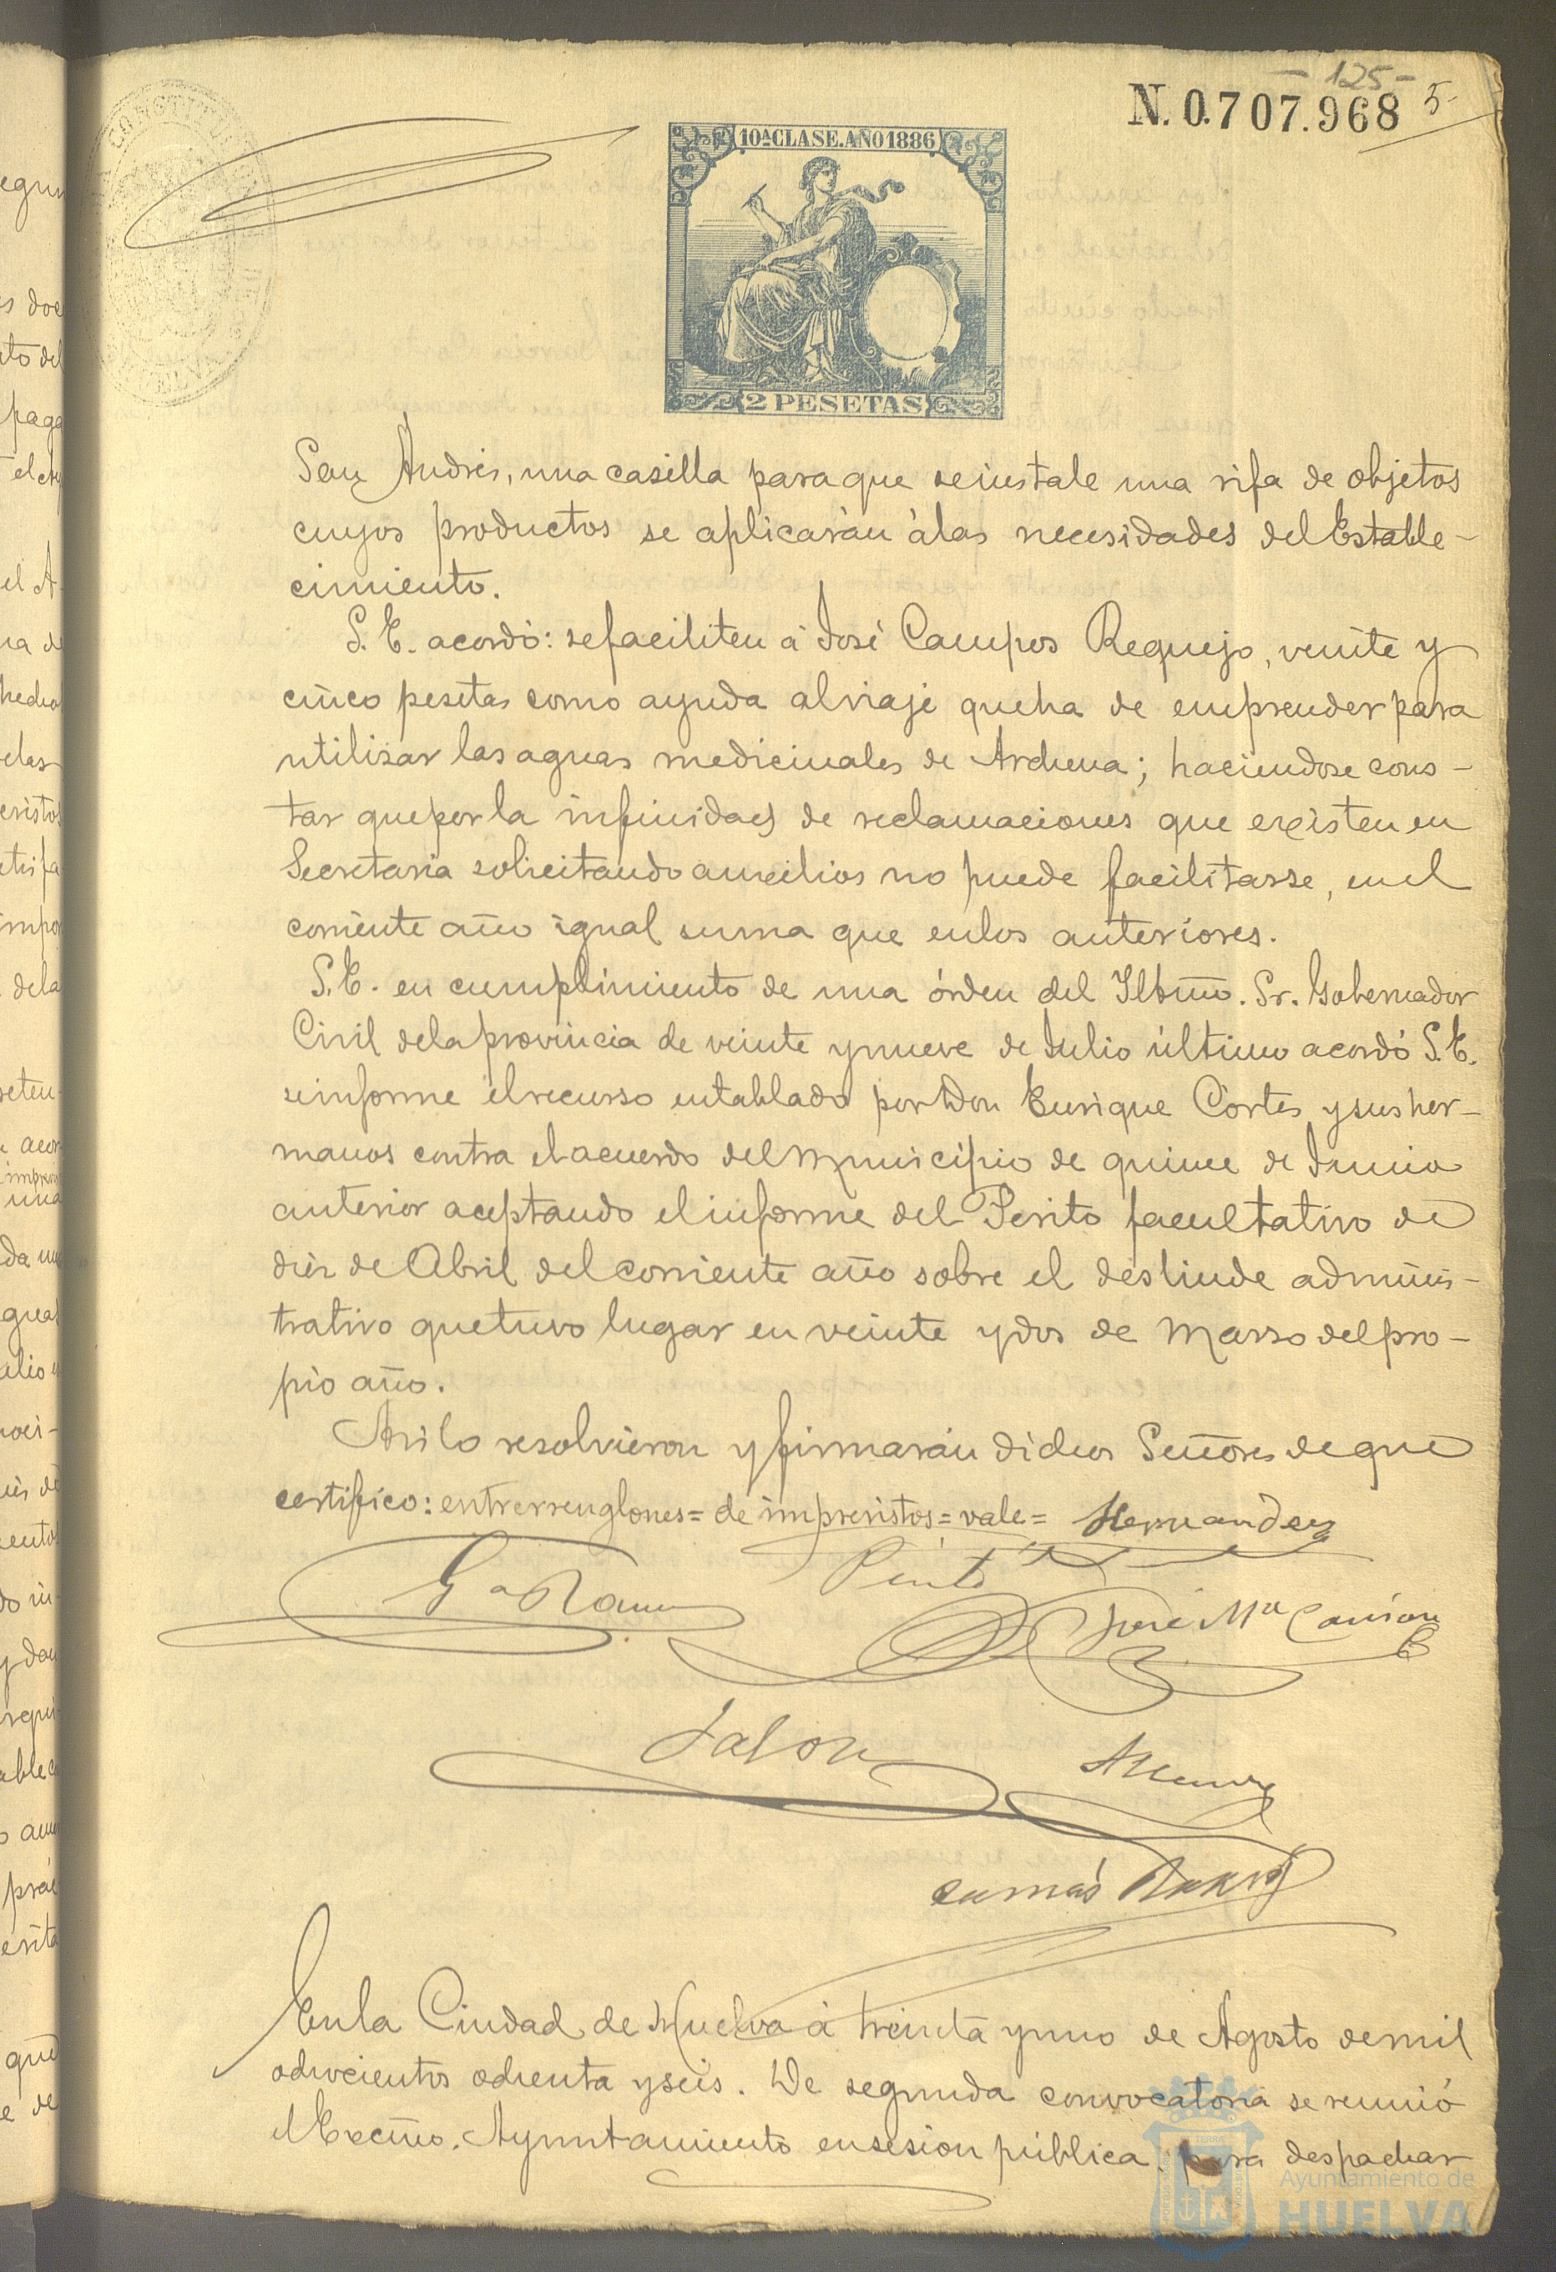 - 125 -
N. 0.707.968 5
10ª CLASE. AÑO 1886
2 PESETAS
San Andrés, una casilla para que se instale una rifa de objetos
cuyos productos se aplicarán á las necesidades del Estable-
cimiento.
S. E. acordó: se faciliten á José Campos Requejo, veinte y
cinco pesetas como ayuda al viaje que ha de emprender para
utilizar las aguas medicinales de Archena; haciendose cons-
tar que por la infinidad de reclamaciones que existen en
Secretaria solicitando auxilios no puede facilitarse, en el
corriente año igual suma que en los anteriores.
S. E. en cumplimiento de una órden del Iltmo. Sr. Gobernador
Civil de la provincia de veinte y nueve de Julio último acordó S. E.
se informe el recurso entablado por Don Enrique Cortes y sus her-
manos contra el acuerdo del Municipio de quince de Junio
anterior aceptando el informe del Perito facultativo de
diez de Abril del corriente año sobre el deslinde adminis-
trativo que tuvo lugar en veinte y dos de Marzo del pro-
pio año.
Asi lo resolvieron y firmarán dichos Señores de que
certifico: entrerrenglones = de imprevistos = vale = Hernandez
Gª Ramos Pinto
José Mª Carrion
Jalon
Tomás
En la Ciudad de Huelva á treinta y uno de Agosto de mil
ochocientos ochenta y seis. De segunda convocatoria se reunió
el Excmo. Ayuntamiento en sesion pública, para despachar
Ayuntamiento de
HUELVA